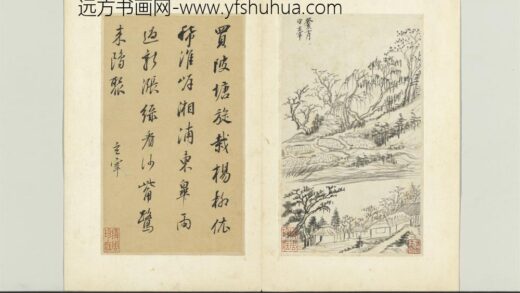 远方书画网-www.yfshuhua.com
買陂塘旋栽楊柳依
稀淮岸湘浦東皋雨
過新漲綠看沙觜鷺
来鷗聚
玄宰